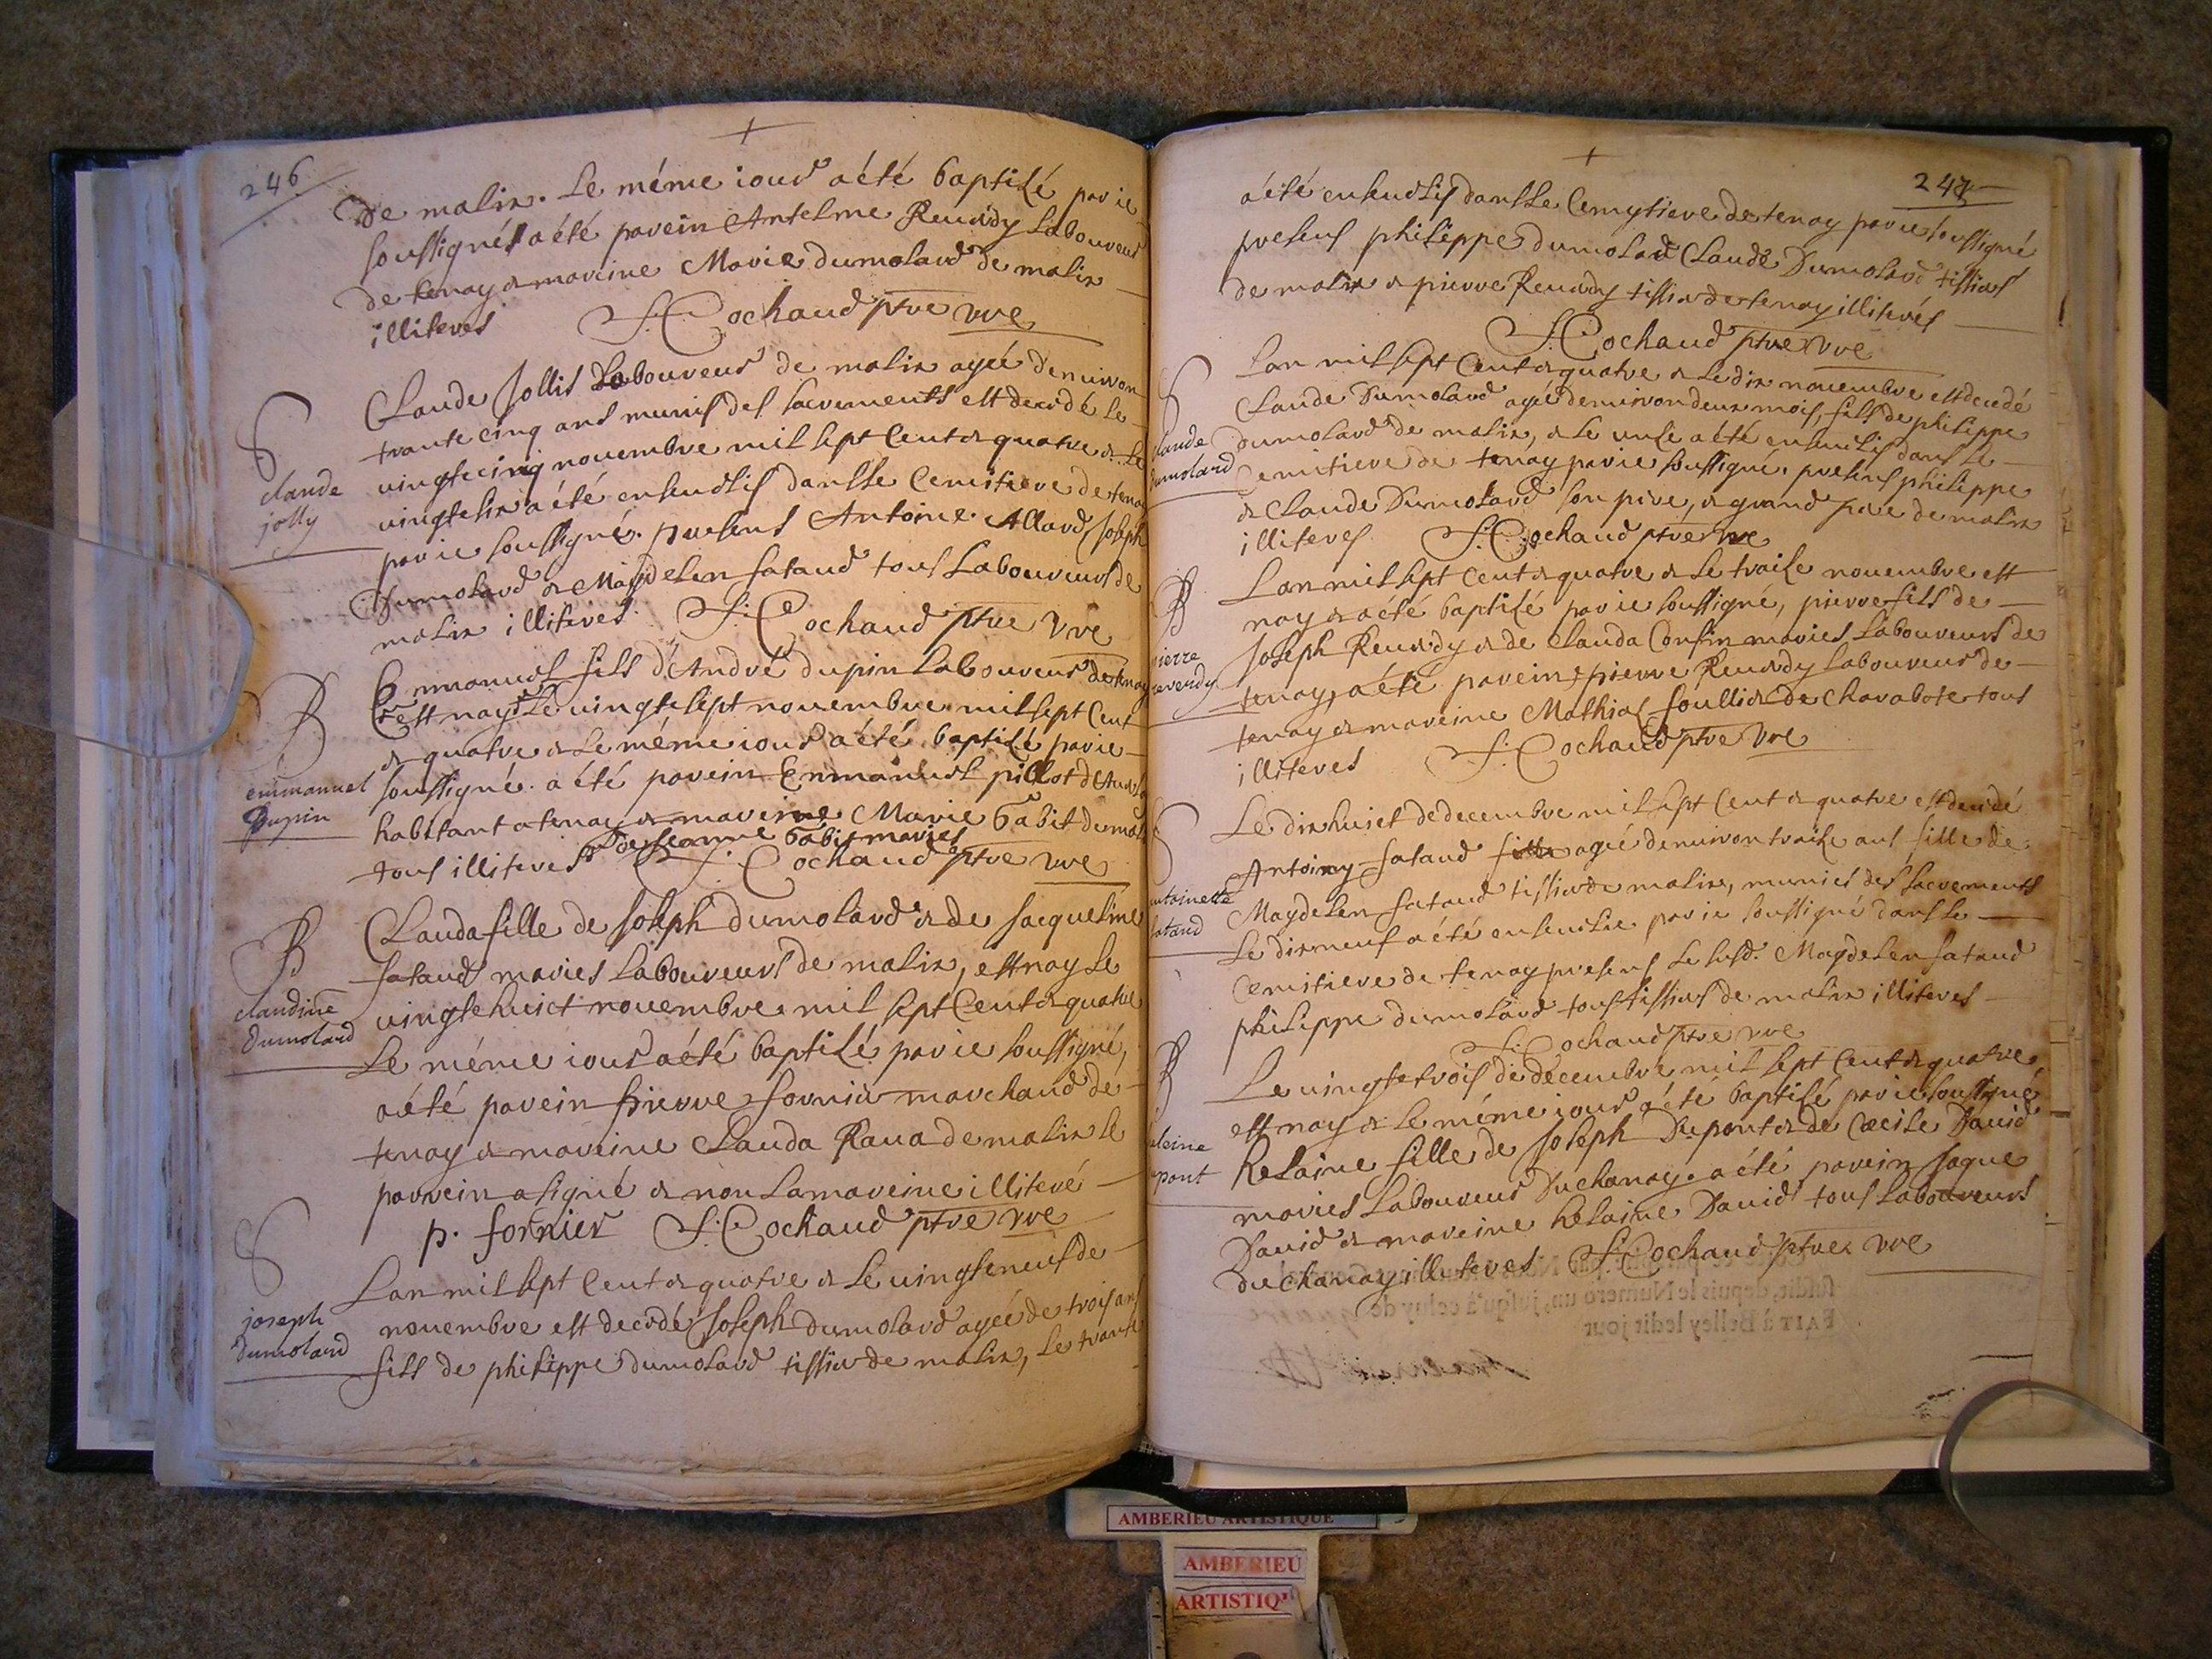 246
De malix. Le méme iour a été baptizé par ie
soussigné, a été parein Antelme Reuerdy Laboureur
de tenay & mareine Marie dumolard de malix
illiterés F: Cochaud ptre vre
S
claude
jolly
Claude Jollis Laboureur de malix agée denuiron
trante cinq ans munis des sacrements est decedé le
uingtecinq nouembre mil sept Cent & quatre & le
uingtesix a été enseuelis dans le Cemitiere de tenay
par ie soussigné. presens Antoine Allard, Joseph
Dumolard & Magdelen sataud tous Laboureurs de
malix illiterés. F: Cochaud ptre vre
B
emmanuel
Dupin
Emmanuel fils d'André dupin Laboureur de tenay
est nay le uingtesept nouembre mil sept Cent
& quatre & le méme iour a été baptizé par ie
soussigné. a été parein Emmanuel pillot
habitant a tenay & mareine Marie babit
& de Jeanne babit mariés
tous illiterés F: Cochaud ptre vre
B
claudine
Dumolard
Clauda fille de Joseph dumolard & de Jacqueline
sataud mariés Laboureurs de malix, est nay le
uingtehuict nouembre mil sept Cent & quatre
Le méme iour a été baptizé par ie soussigné,
a été parein pierre fornier marchand de
tenay & mareine Clauda Raua de malix le
parrein a signé & non la mareine illiteré
p. fornier F: Cochaud ptre vre
S
joseph
Dumolard
Lan mil sept Cent & quatre & le uingteneuf de
nouembre est decedé Joseph dumolard agée de trois ans
fils de philippe dumolard tissier de malix, le trante
247
a été enseuelis dans le Cemytiere de tenay par ie soussigné
presens philippe dumolard Claude Dumolard tissiers
de malix & pierre Reuerdy tissier de tenay illiterés
F: Cochaud ptre vre
S
claude
Dumolard
Lan mil sept Cent & quatre & le dix nouembre est decedé
Claude Dumolard agée denuiron deux mois, fils de philippe
dumolard de malix, & le unze a été enseuelis dans le
Cemitiere de tenay par ie soussigné. presens philippe
& Claude Dumolard son pere, & grand pere de malix
illiterés F: Cochaud ptre vre
B
pierre
reverdy
Lan mil sept Cent & quatre & le traize nouembre est
nay & a été baptizé par ie soussigné, pierre fils de
Joseph Reuerdy & de Clauda Confin mariés Laboureurs de
tenay, a été parein pierre Reuerdy Laboureur de
tenay & mareine Mathia foullier de Charabote tous
illiterés F: Cochaud ptre vre
S
antoinette
sataud
Le dix huict de decembre mil sept Cent & quatre est decedé
Antoiny sataud agée denuiron traize ans fille de
Magdelen sataud tissier de malix, munies des sacrements
Le dixneuf a été enseuelie par ie soussigné dans le
Cemitiere de tenay presens le susd. Magdelen sataud
philippe dumolard tous tissiers de malix illiterés
F: Cochaud ptre vre
B
eleine
Dupont
Le uingtetrois de decembre mil sept Cent & quatre
est nay & le méme iour a été baptizé par ie soussigné
helaine fille de Joseph Dupont & de Cæcile Dauid
mariés Laboureur Du chanay. a été parein Jaque
Dauid & mareine helaine Dauid tous Laboureurs
du chanay illiterés F: Cochaud ptre vre
susdit, depuis le Numero un, jusqu'à celuy de
FAIT à Belley ledit jour
AMBERIEU ARTISTIQUE
AMBERIEU
ARTISTIQU